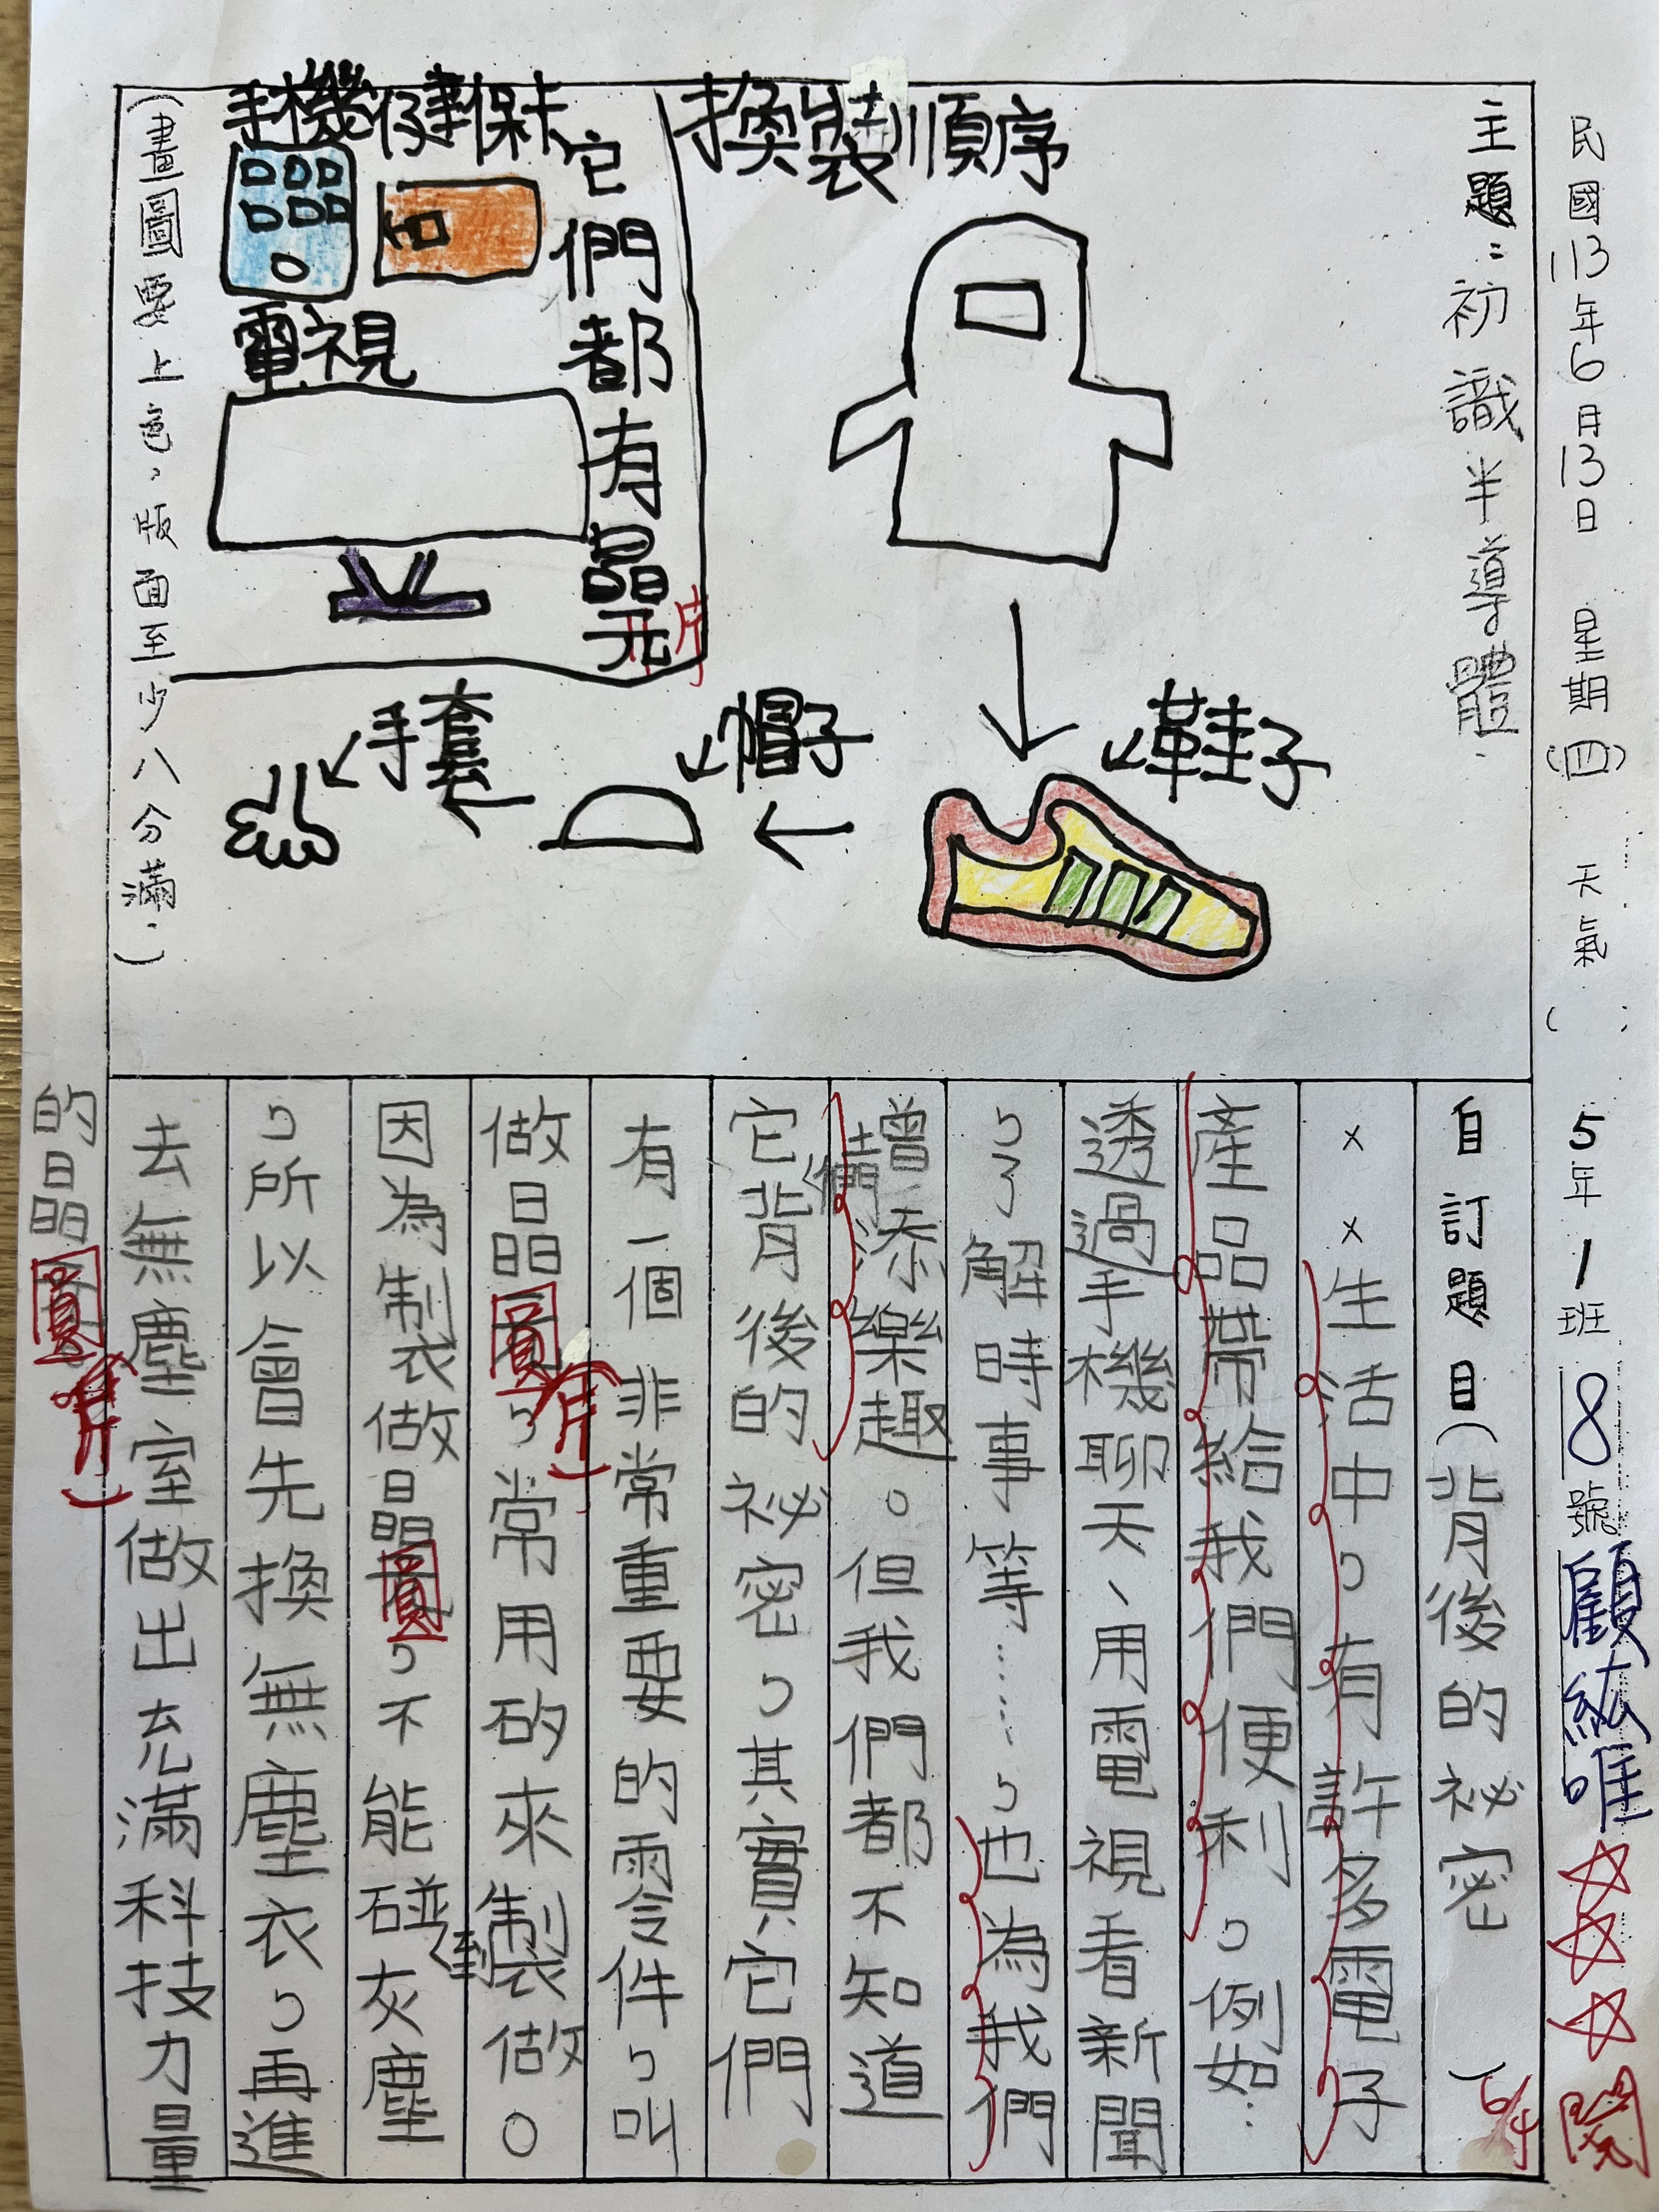 民國113年6月13日 星期(四) 天氣( : 5年1班 8號顧紘唯
閱
6/4
主題：初識半導體
換裝順序
鞋子
帽子
手套
手機 健保卡
電視
它們都有晶元
片
(畫圖要上色，版面至少八分滿。)
自訂題目)背後的祕密 )
××生活中，有許多電子
產品帶給我們便利，例如：
透過手機聊天、用電視看新聞
，了解時事等……，也為我們
增添樂趣。但我們都不知道
它背後的祕密，其實它們
有一個非常重要的零件，叫
做晶圓(片)，常用矽來製做。
因為制衣做晶圓，不能碰到灰塵
，所以會先換無塵衣，再進
去無塵室做出充滿科技力量
的晶圓(片)